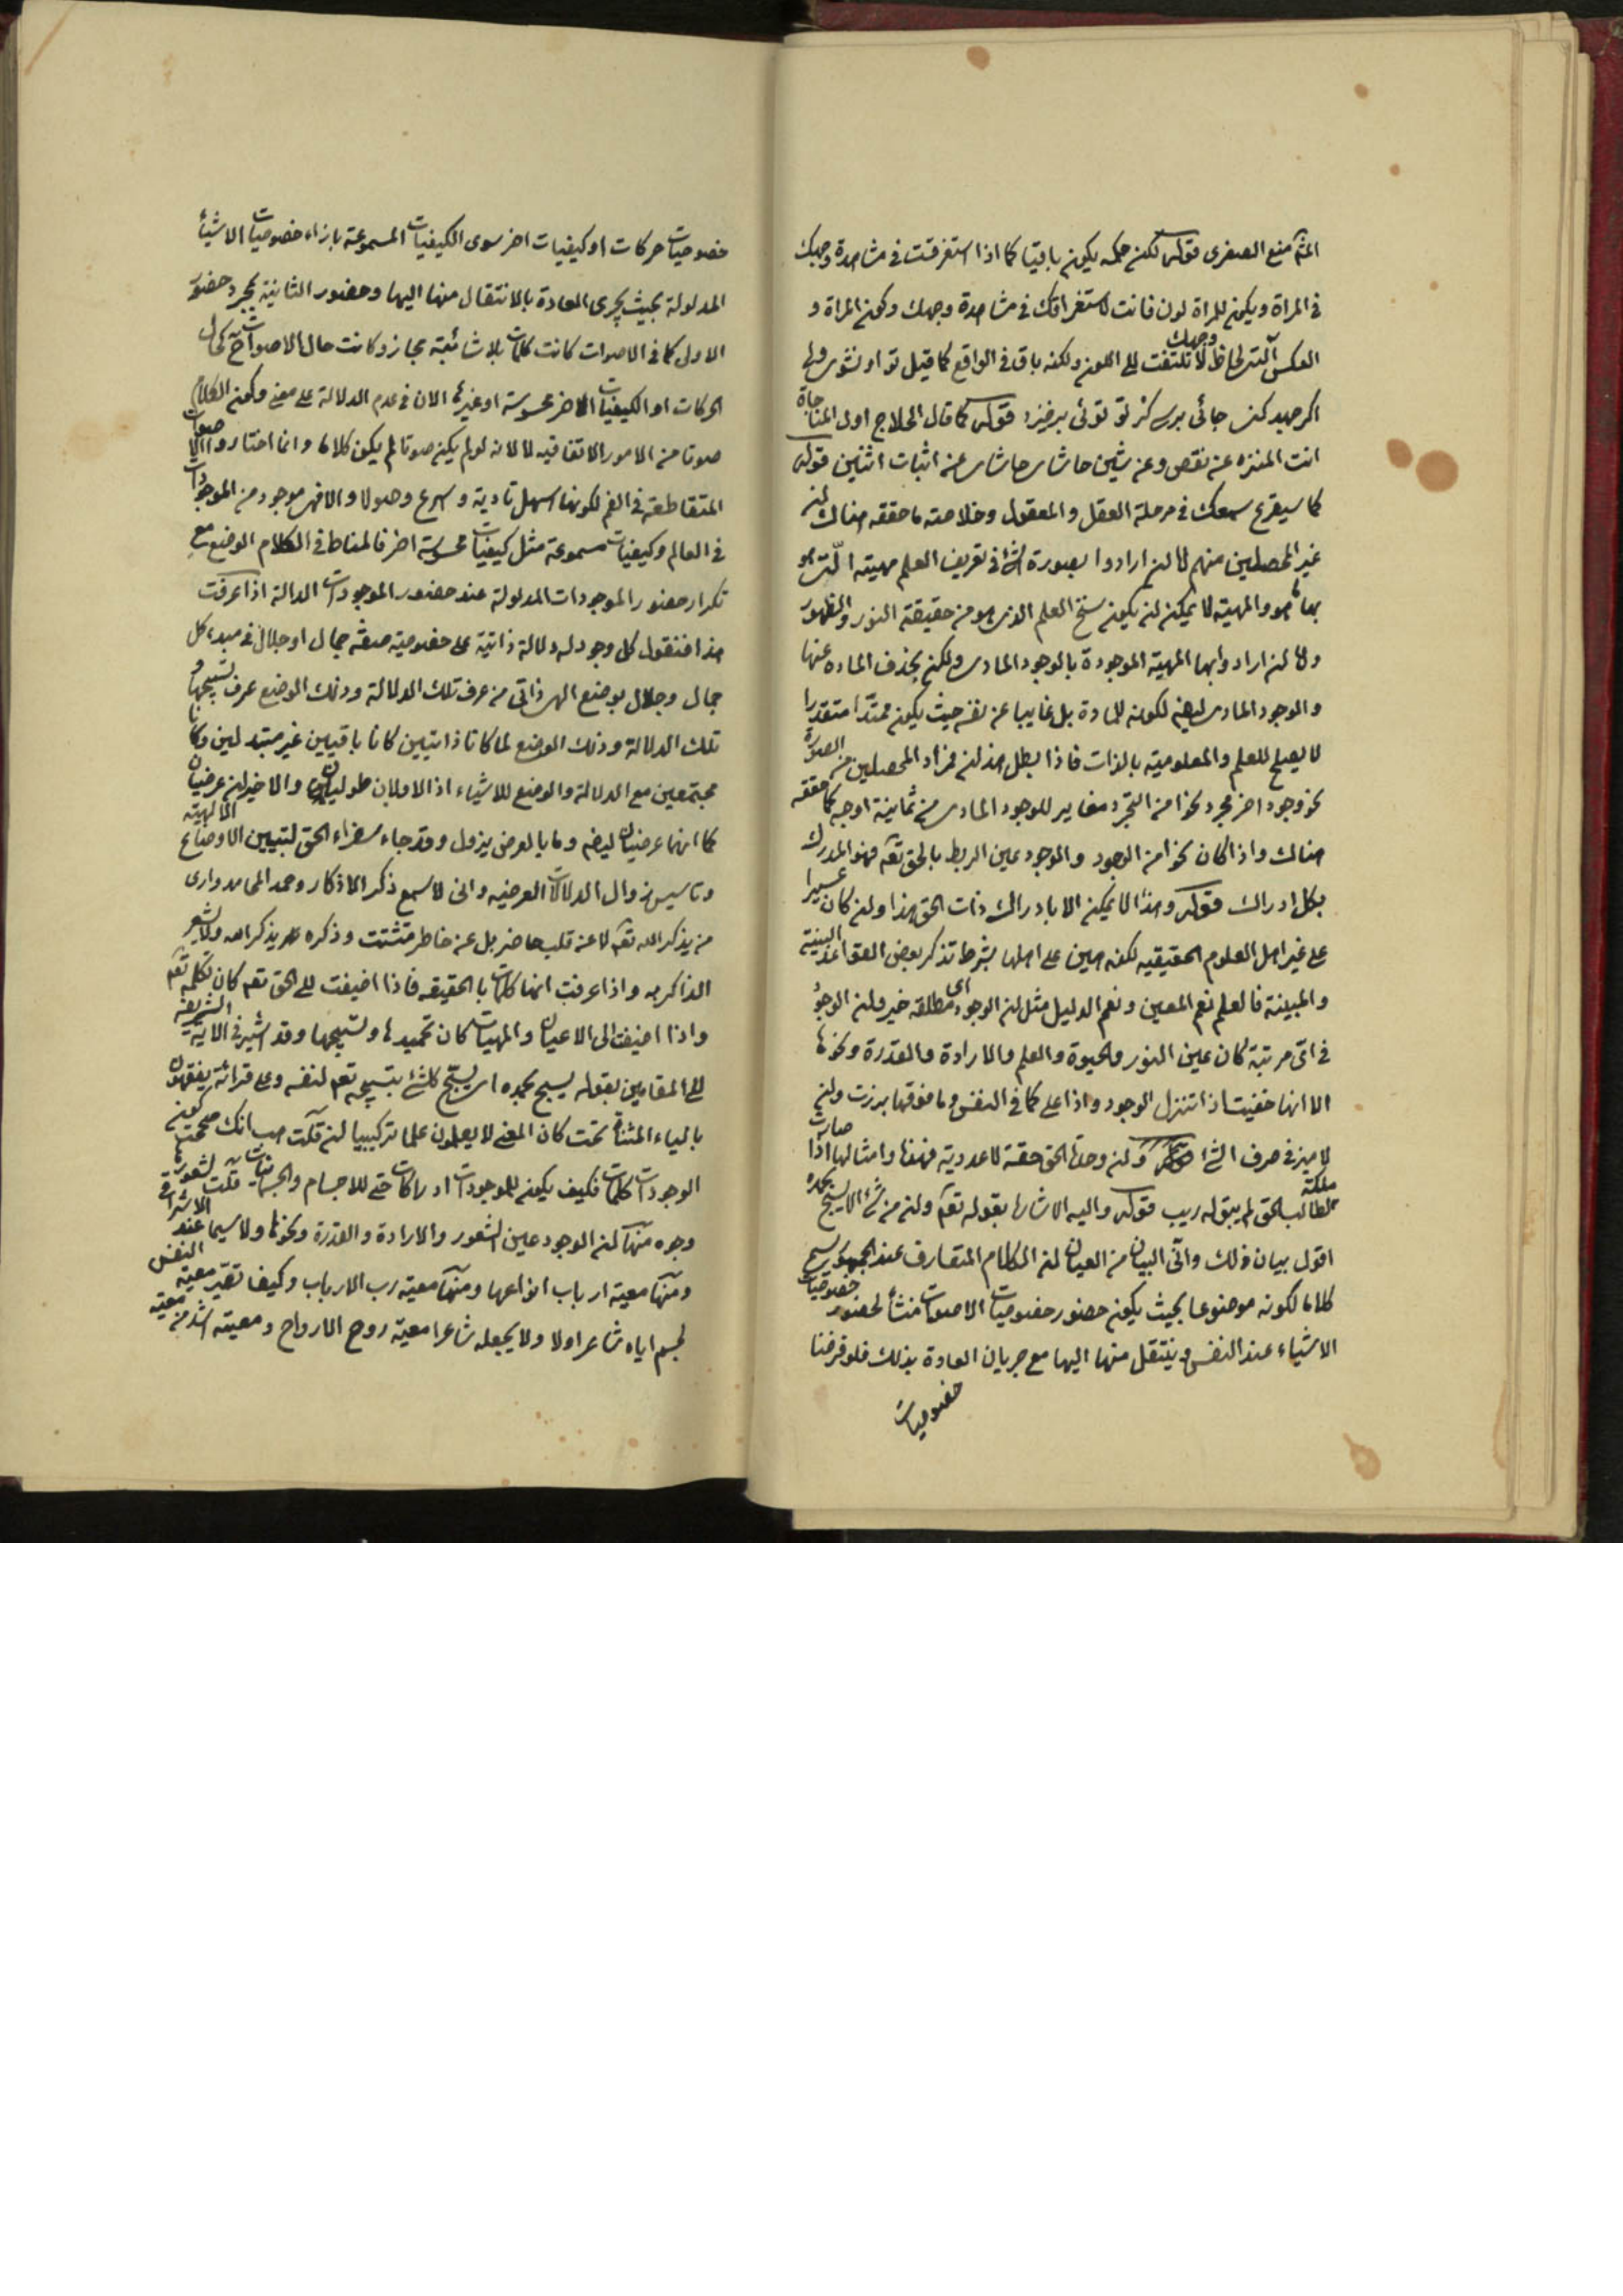 المثم منع الصغرى قوله لكن حكمه يكون باقيا كما اذا استغرقت فى مشاهدة وجهك
فى المراة ويكون للمراة لون فانت لاستغراقك فى مشاهدة وجهك وكون المراة و
العكس آلتى لحاظ وجهك لا تلتفت الى اللون ولكنه باق فى الواقع كما قيل تو او نشوى ولى
اكر جهد كنى جائى برسى كز تو توئى برخيزد قوله كما قال الحلاج اول المناجاة
انت المنزه عن نقص وعن شين حاشاى حاشاى عن اثبات اثنين قوله
كما سيقرع سمعك فى مرحلة العقل والمعقول وخلاصته ما حققه هناك ان
غير المحصلين منهم لما ان ارادوا بصورة الشئ فى تعريف العلم مهيته الّتى هو
بها هو والمهية لا يمكن ان يكون سنخ العلم الذى هو من حقيقة النور والظهور
ولما ان ارادوا بها المهية الموجودة بالوجود المادى ولكن بحذف المادة عنها
والموجود المادى ايضا لكونه للمادة بل غايبا عن نفسه حيث يكون ممتدّا متقدرا
لا يصلح للعلم والمعلومية بالذات فاذا بطل هذان فمراد المحصلين من الصورة
نحو وجود اخر مجرد نحوا من التجرد مغاير للوجود المادى من ثمانية اوجه كما حققه
هناك واذا كان نحوا من الوجود والوجود عين الربط بالحق تعه فهو المدرك
بكل ادراك قوله وهذا لا يمكن الا بادراك ذات الحق هذا وان كان عسيرا
على غير اهل العلوم الحقيقيه لكنه هين على اهلها بشرط تذكر بعض القواعد البينية
والمبينة فالعلم نعم المعين ونعم الدليل مثل ان الوجود اى مطلقه خير وان الوجود
فى اى مرتبة كان عين النور والحيوة والعلم والارادة والقدرة ونحوها
الا انها خفيت اذا تنزل الوجود واذا على كما فى النفس وما فوقها برزت وان
لا ميز فى صرف الشئ وان وحدة الحق حقة لا عددية فهذه وامثالها اذا صارت
ملكة لطالب الحق لم يبق له ريب قوله واليه الاشارة بقوله تعه وان من شئ الا يسبح بحمده
اقول بيان ذلك وآتى البيان من العيان ان الكلام المتعارف عند الجمهور يسمى
كلاما لكونه موضوعا بحيث يكون حضور خصوصيات الاصوات منشأ لحضور خصوصيات
الاشياء عند النفس وينتقل منها اليها مع جريان العادة بذلك فلو فرضنا
خصوصيات
خصوصيات حركات او كيفيات اخر سوى الكيفيات المسموعة بازاء خصوصيات الاشياء
المدلولة بحيث يجرى العادة بالانتقال منها اليها وحضور الثانية بمجرد حضور
الاولى كما فى الاصوات كانت كلمات بلا شائبة مجاز وكانت حال الاصوات ح كحال
الحركات او الكيفيات الاخر محسوسة او غيرها الان فى عدم الدلالة على معنى وكون الكلام
صوتا من الامور الاتفاقيه لا لانه لو لم يكن صوتا لم يكن كلاما وانما اختاروا الاصوات
المتقاطعة فى الفم لكونها اسهل تادية واسرع وصولا والا فهى موجود من الموجودات
فى العالم وكيفيات مسموعة مثل كيفيات محسوسة اخر فالمناط فى الكلام الوضع مع
تكرار حضور الموجودات المدلولة عند حضور الموجودات الدالة اذا عرفت
هذا فنقول كل وجود له دلالة ذاتية على خصوصية صفة جمال او جلال فى مبدء كل
جمال وجلال بوضع الهى ذاتى من عرف تلك الدلالة وذلك الوضع عرف تسبيحها و
تلك الدلالة وذلك الوضع لما كانا ذاتيين كانا باقيين غير متبدلين وكانا
مجتمعين مع الدلالة والوضع للاشياء اذ الاولان طوليان والاخيران عرضيان
كما انهما عرضيان ايضه وما بالعرض يزول وقد جاء سفراء الحق لتبيين الاوضاع الالهية
وتاسيس زوال الدلالات العرضيه وانى لاسمع ذكر الاذكار وحمد المحامد وارى
من يذكر الله تعه لا عن قلب حاضر بل عن خاطر متشتت وذكره يذكر الله ولا يشعر
الذاكر به واذا عرفت انها كلمات بالحقيقه فاذا اضيفت الى الحق تعه كان تكلمه تعه
واذا اضيفت الى الاعيان والمهيات كان تحميدها وتسبيحها وقد اشير فى الاية الشريفة
الى المقامين بقوله يسبح بحمده اى يسبح كلشئ بتسبيحه تعه لنفسه وعلى قرائة يفقهون
بالياء المثناة تحت كان المعنى لا يعلمون علما تركيبيا ان قلت هب انك صححت كون
الوجودات كلمات فكيف يكون للموجودات ادراكات حتى للاجسام والجسمانيات قلت لشعورها
وجوه منها ان الوجود عين الشعور والارادة والقدرة ونحوها ولا سيما عند الاشراقى
ومنها معية ارباب انواعها ومنها معية رب الارباب وكيف تصير معية النفس
لجسم اياه شاعرا ولا يجعله شاعرا معية روح الارواح ومعيته اشد من معية